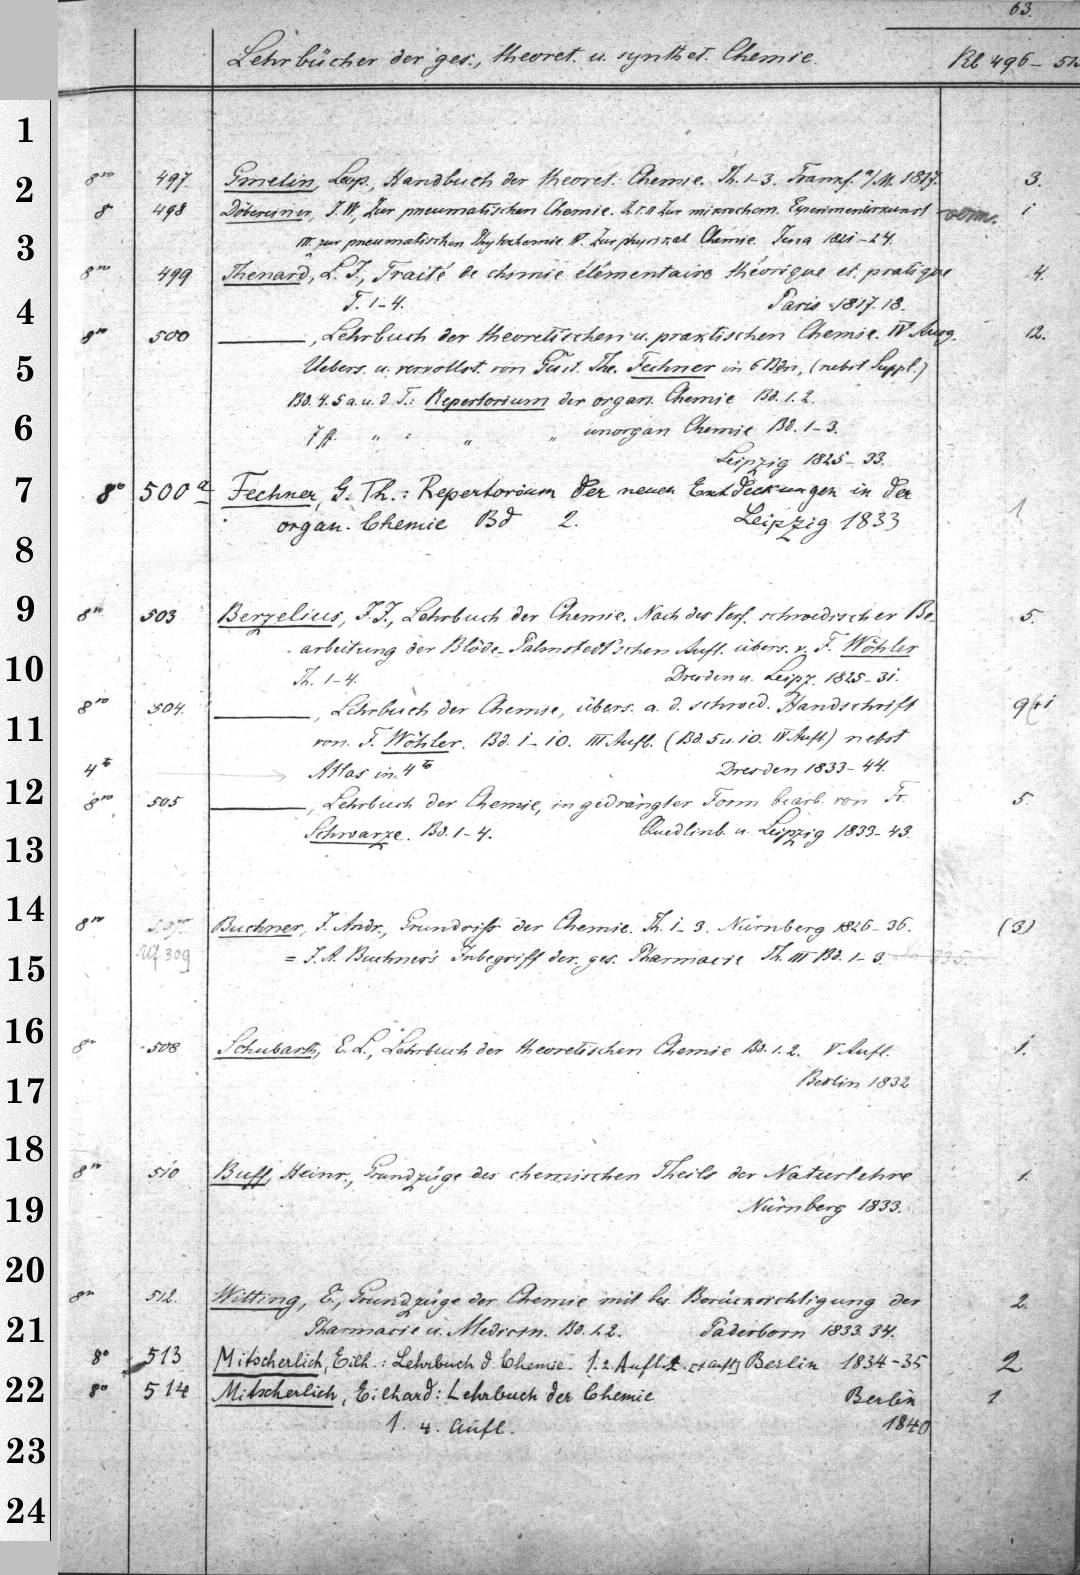 63.
Lehrbücher der ges., theoret. u. synthet. Chemie. Rb 496–
1
2 8vo 497. Gmelin, Leop., Handbuch der theoret. Chemie. Th. 1-3. Frankf. a/M. 1817. 3.
8 498 Döbereiner, J. W., Zur pneumatischen Chemie. Zur mikrochem. Experimentirkunst 1
3 III. zur pneumatischen Phytochemie IV. Zur physikal. Chemie. Jena 1821-24.
8vo 499 Thénard, L. J., Traité de chimie élémentaire théorique et pratique 4.
4 T. 1-4. Paris 1817.18.
8vo 500 ———, Lehrbuch der theoretischen u. praktischen Chemie. IV Ausg. 12.
5 Uebers. u. vervollst. von Gust. Th. Fechner in 6 Bdn, (nebst Suppl.)
Bd. 4. 5 a. u. d. T.: Repertorium der organ. Chemie Bd. 1. 2.
6 7 ff. „ „ „ „ unorgan Chemie Bd. 1-3.
Leipzig 1825-33.
7 8° 500a Fechner, G. Th.: Repertorium der neuen Entdeckungen in der 1
organ. Chemie Bd 2. Leipzig 1833
8
9 8vo 503 Berzelius, J. J., Lehrbuch der Chemie. Nach des Verf. schwedischer Be-
5.
arbeitung der Blöde-Palmstedt'schen Aufl. übers. v. F. Wöhler
10 Th. 1-4. Dresden u. Leipz. 1825-31.
8vo 504. ———, Lehrbuch der Chemie, übers. a. d. schwed. Handschrift 9+1
11 von F. Wöhler. Bd. 1-10. III Aufl. (Bd. 5 u. 10. IV Aufl.) nebst
4to Atlas in 4to Dresden 1833-44.
12 8vo 505 ———, Lehrbuch der Chemie, in gedrängter Form bearb. von Fr. 5.
Schwarze. Bd. 1-4. Quedlinb. u. Leipzig 1833-43.
13
14 8vo 507 Buchner, J. Andr., Grundriß der Chemie. Th. 1-3. Nürnberg 1826-36. (3)
15 309 = J. A. Buchner's Inbegriff der ges. Pharmacie Th. III Bd. 1-3.
16
8vo 508 Schubarth, E. L., Lehrbuch der theoretischen Chemie Bd. 1. 2. V Aufl. 1.
17 Berlin 1832
18
8vo 510 Buff, Heinr., Grundzüge des chemischen Theils der Naturlehre 1.
19 Nürnberg 1833.
20
8vo 512. Witting, E., Grundzüge der Chemie mit bes. Berücksichtigung der 2.
21 Pharmacie u. Medicin. Bd. 1.2. Paderborn 1833.34.
8° 513 Mitscherlich, Eilh.: Lehrbuch d. Chemie. 1. 2. Aufl. 2. [1 Aufl.] Berlin 1834-35 2
22 8° 514 Mitscherlich, Eilhard: Lehrbuch der Chemie Berlin 1
1. 4. Aufl. 1840
23
24